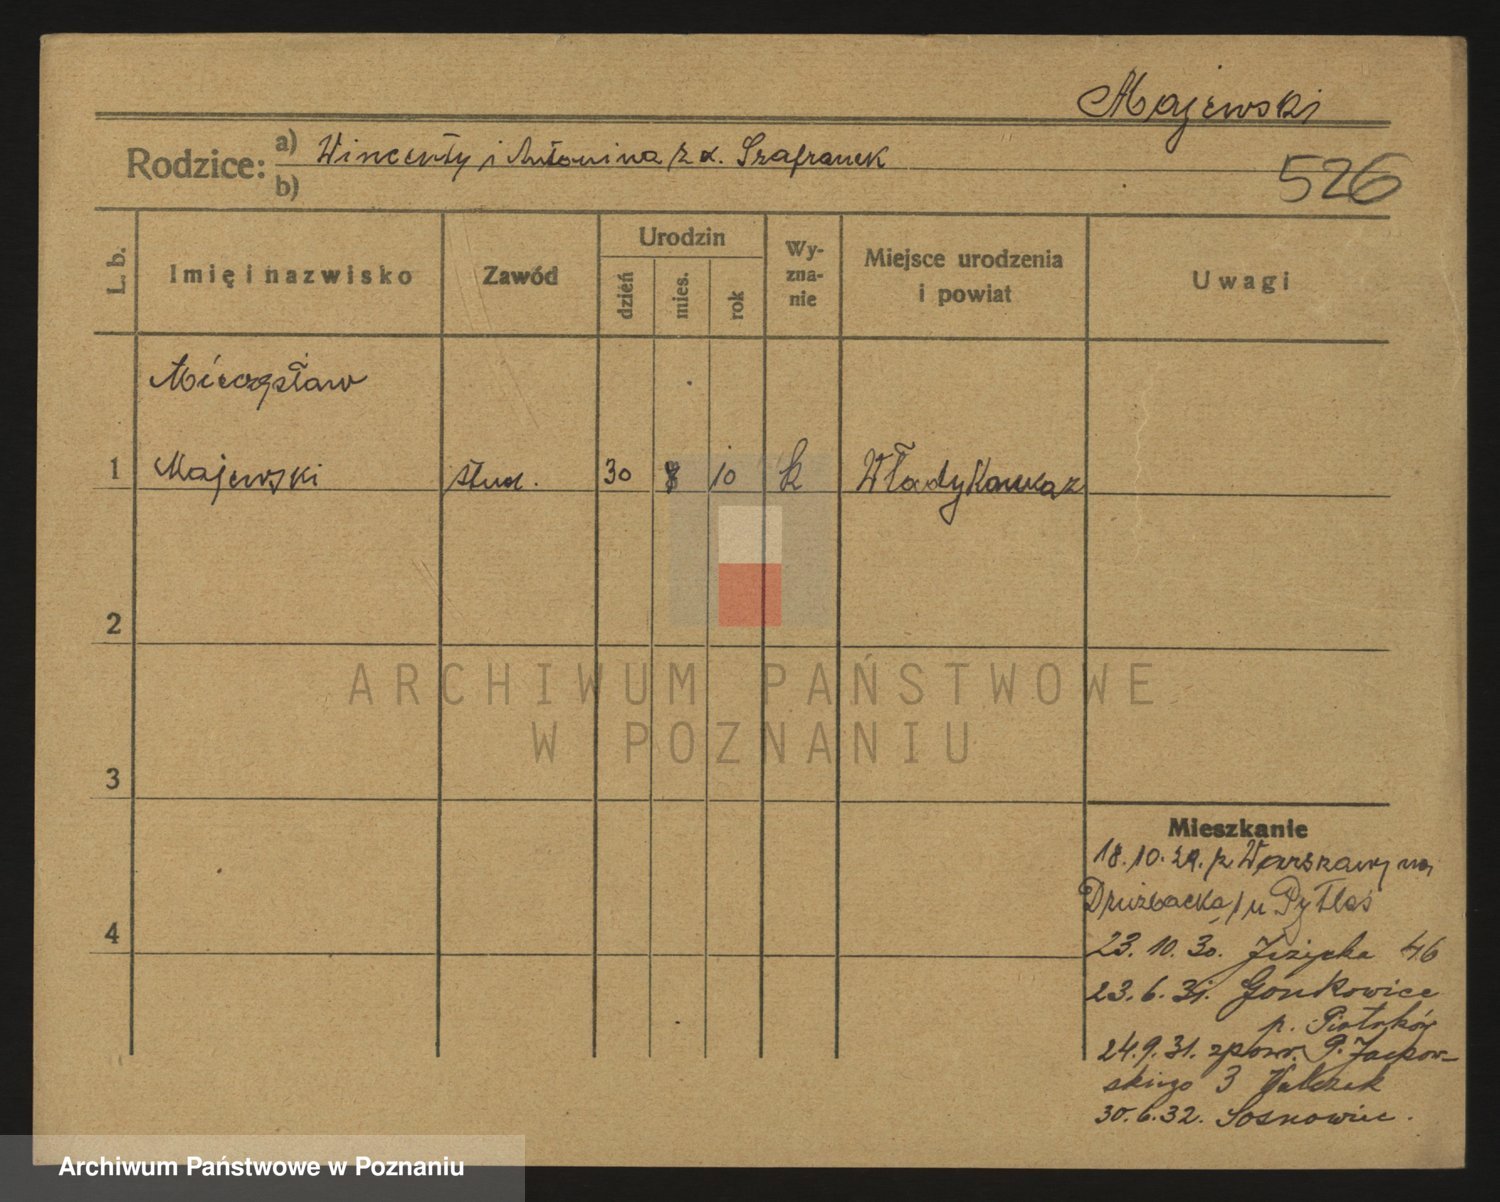 Majewski
Rodzice: a) Wincenty i Antonina z d. Szafranek
b)
526
L. b.
Imię i nazwisko
Zawód
Urodzin
dzień
mies.
rok
Wy-
zna-
nie
Miejsce urodzenia
i powiat
Uwagi
Mieczysław
1 Majewski stud. 30 8 10 k Władykaukaz
2
ARCHIWUM PAŃSTWOWE
W POZNANIU
3
Mieszkanie
18.10.29. z Warszawy na
Drużbacka / u Pytlas
4
23. 10. 30. Jeżycka 46
23. 6. 31. Gorzkowice
p. Piotrków
24.9.31. zpow. P. Jackow-
skiego 3 Walczak
30.6.32. Sosnowiec.
Archiwum Państwowe w Poznaniu